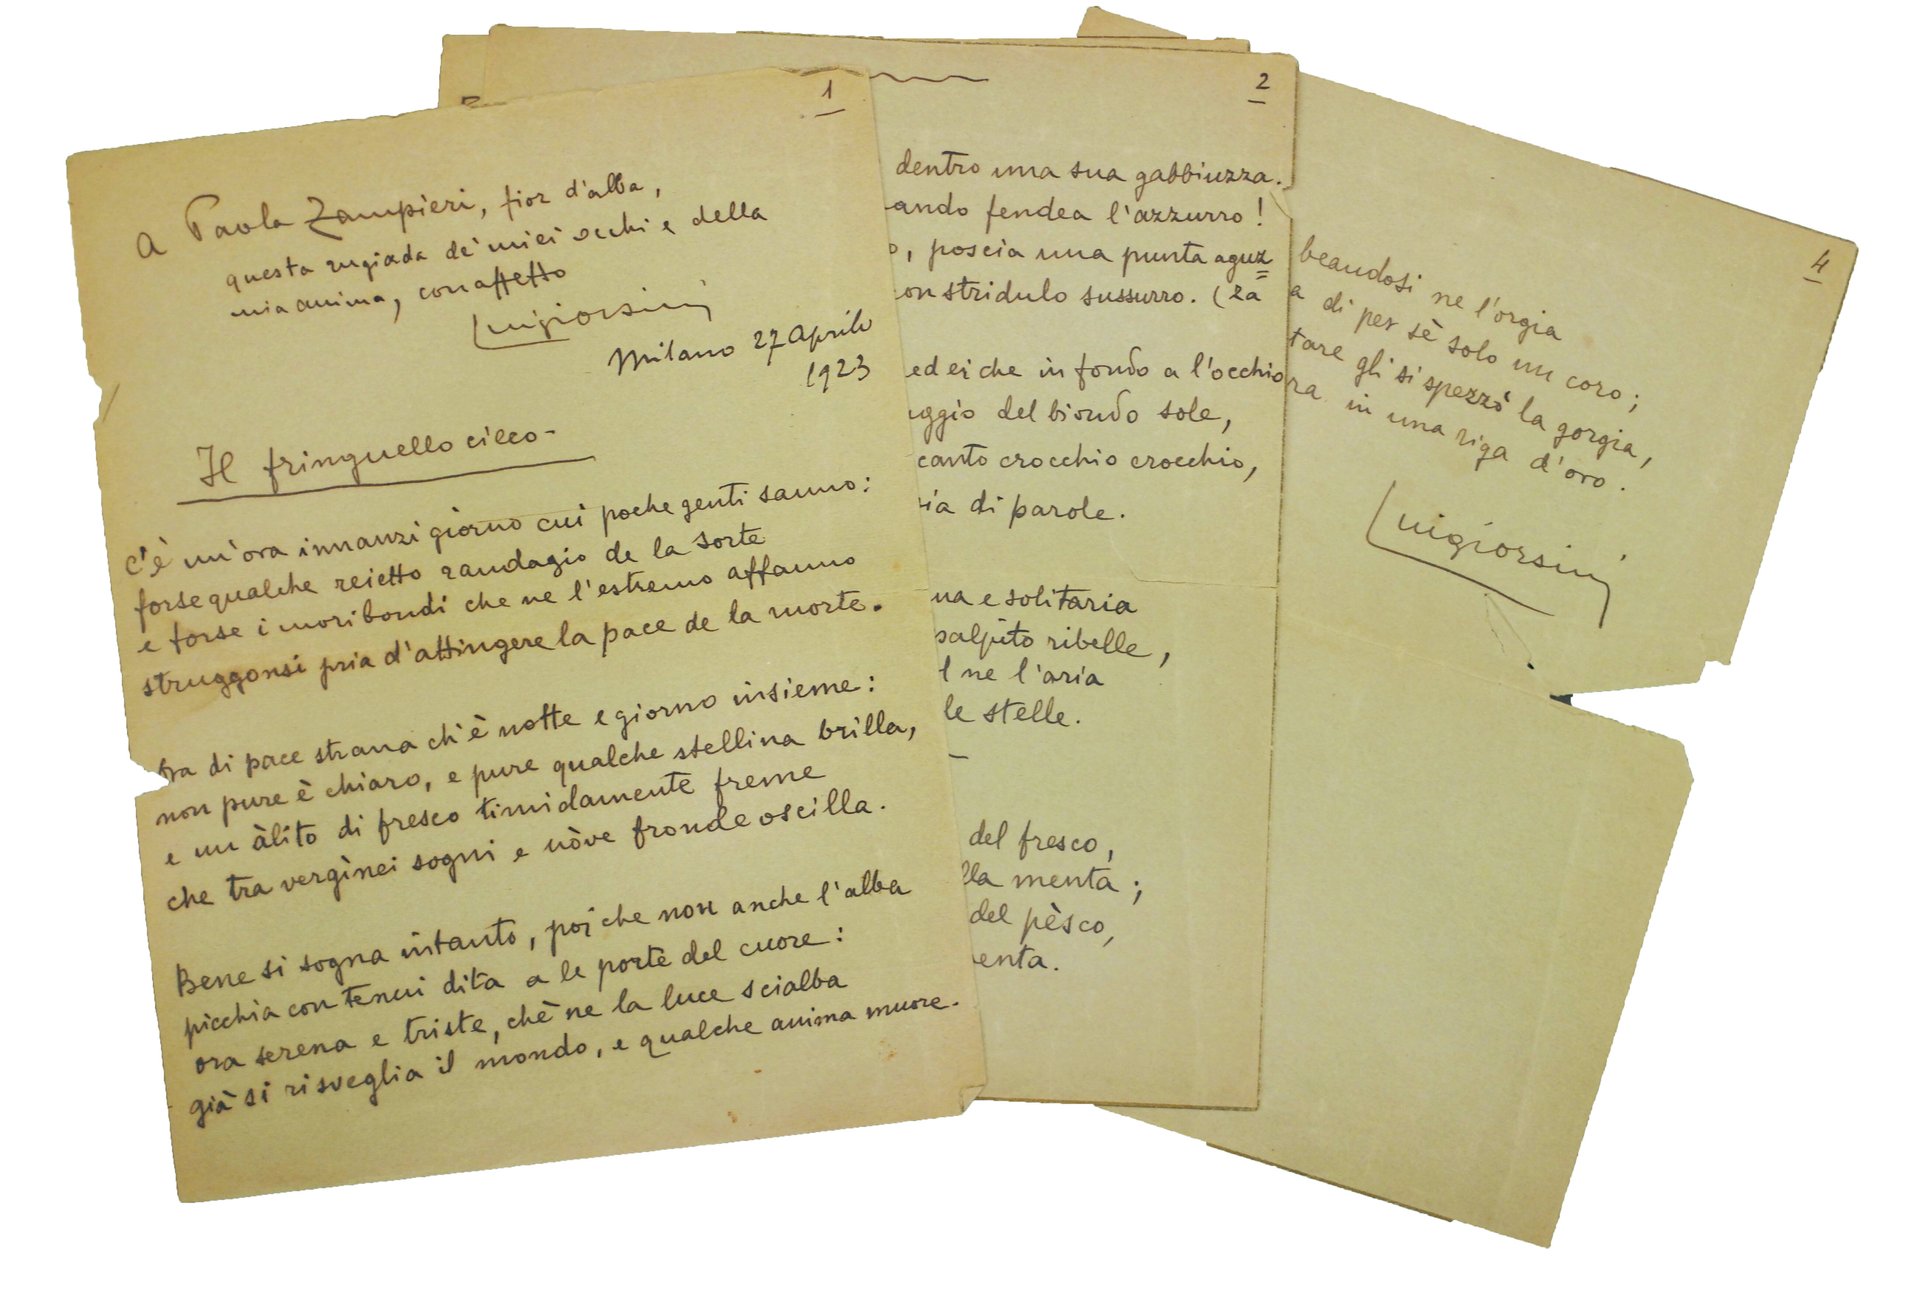 1
A Paola Zampieri, fior d'alba,
questa rugiada de' miei occhi e della
mia anima, con affetto
Luigiorsini
Milano 27 Aprile
1923
Il fringuello cieco-
C'è un'ora innanzi giorno cui poche genti sanno:
forse qualche reietto randagio de la sorte
e forse i moribondi che ne l'estremo affanno
struggonsi pria d'attingere la pace de la morte.
Ora di pace strana ch'è notte e giorno insieme:
non pure è chiaro, e pure qualche stellina brilla,
e un àlito di fresco timidamente freme
che tra vergìnei sogni e nòve fronde oscilla.
Bene si sogna intanto, poi che non anche l'alba
picchia con tenui dita a le porte del cuore:
ora serena e triste, chè ne la luce scialba
già si risveglia il mondo, e qualche anima muore.
2
dentro una sua gabbiuzza.
ando fendea l'azzurro!
o, poscia una punta aguz
on stridulo sussurro. (za
ed ei che in fondo a l'occhio
aggio del biondo sole,
canto crocchio crocchio,
ia di parole.
na e solitaria
palpito ribelle,
l ne l'aria
le stelle.
del fresco,
lla menta;
del pèsco,
enta.
4
beandosi ne l'orgia
a di per sè solo un coro;
tare gli si spezzò la gorgia,
ra in una riga d'oro.
Luigiorsini